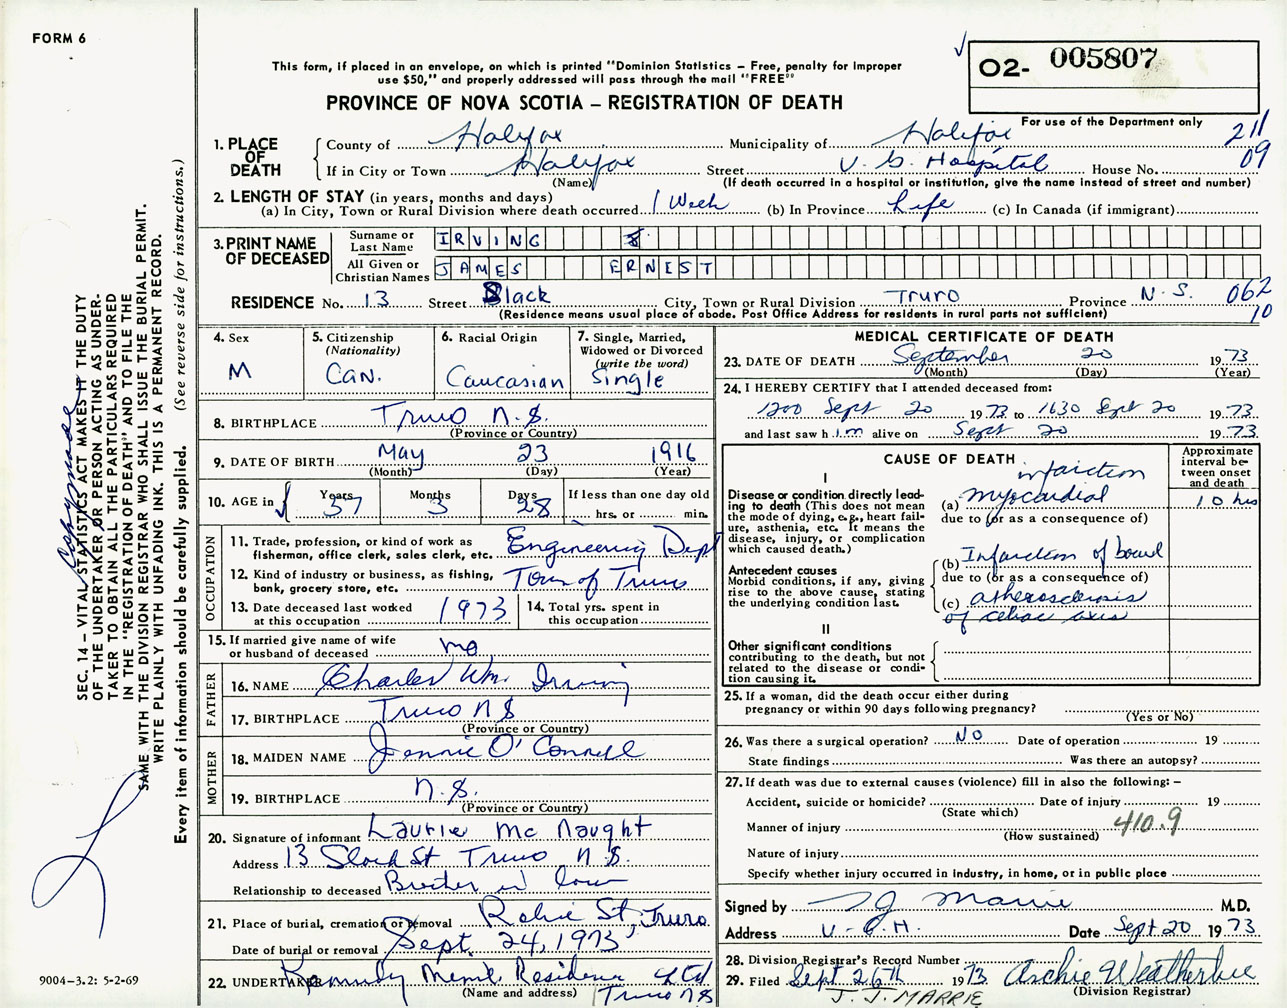 FORM 6
This form, if placed in an envelope, on which is printed "Dominion Statistics – Free, penalty for improper
use $50," and properly addressed will pass through the mail "FREE"
PROVINCE OF NOVA SCOTIA – REGISTRATION OF DEATH
O2- 005807
For use of the Department only
211
09
1. PLACE OF DEATH
County of Halifax Municipality of Halifax
If in City or Town Halifax Street V. G. Hospital House No.
(Name) (If death occurred in a hospital or institution, give the name instead of street and number)
2. LENGTH OF STAY (in years, months and days)
(a) In City, Town or Rural Division where death occurred 1 Week (b) In Province Life (c) In Canada (if immigrant)
3. PRINT NAME OF DECEASED
Surname or Last Name IRVING
All Given or Christian Names JAMES ERNEST
RESIDENCE No. 13 Street Slack City, Town or Rural Division Truro Province N.S. 062
(Residence means usual place of abode. Post Office Address for residents in rural parts not sufficient) 10
4. Sex M
5. Citizenship (Nationality) Can.
6. Racial Origin Caucasian
7. Single, Married, Widowed or Divorced (write the word) Single
8. BIRTHPLACE Truro N.S.
(Province or Country)
9. DATE OF BIRTH May 23 1916
(Month) (Day) (Year)
10. AGE in Years 57 Months 3 Days 28 If less than one day old
hrs. or min.
OCCUPATION
11. Trade, profession, or kind of work as
fisherman, office clerk, sales clerk, etc. Engineering Dept
12. Kind of industry or business, as fishing,
bank, grocery store, etc. Town of Truro
13. Date deceased last worked
at this occupation 1973
14. Total yrs. spent in
this occupation
15. If married give name of wife
or husband of deceased no
FATHER
16. NAME Charles Wm. Irving
17. BIRTHPLACE Truro NS
(Province or Country)
MOTHER
18. MAIDEN NAME Jennie O'Connell
19. BIRTHPLACE N.S.
(Province or Country)
20. Signature of informant Laurie Mc Naught
Address 13 Slack St Truro N.S.
Relationship to deceased Brother in law
21. Place of burial, cremation or removal Robie St, Truro
Date of burial or removal Sept. 24, 1973
22. UNDERTAKER Meml. Residence Ltd
(Name and address) Truro NS
MEDICAL CERTIFICATE OF DEATH
23. DATE OF DEATH September 20 1973
(Month) (Day) (Year)
24. I HEREBY CERTIFY that I attended deceased from:
1200 Sept 20 1973 to 1630 Sept 20 1973
and last saw him alive on Sept 20 1973
CAUSE OF DEATH
Approximate interval between onset and death
I
Disease or condition directly lead-
ing to death (This does not mean
the mode of dying, e.g., heart fail-
ure, asthenia, etc. It means the
disease, injury, or complication
which caused death.)
infarction
(a) myocardial 10 hrs
due to (or as a consequence of)
(b) Infarction of bowel
due to (or as a consequence of)
Antecedent causes
Morbid conditions, if any, giving
rise to the above cause, stating
the underlying condition last.
(c) atherosclerosis
of celiac axis
II
Other significant conditions
contributing to the death, but not
related to the disease or condi-
tion causing it.
25. If a woman, did the death occur either during
pregnancy or within 90 days following pregnancy?
(Yes or No)
26. Was there a surgical operation? NO Date of operation 19
State findings Was there an autopsy?
27. If death was due to external causes (violence) fill in also the following: –
Accident, suicide or homicide? Date of injury 19
(State which)
Manner of injury 410.9
(How sustained)
Nature of injury
Specify whether injury occurred in industry, in home, or in public place
Signed by J J Marrie M.D.
Address V.G.H. Date Sept 20 1973
28. Division Registrar's Record Number
29. Filed Sept 26th 1973 Archie Weatherbie
(Division Registrar)
J. J. MARRIE
SEC. 14 – VITAL STATISTICS ACT MAKES IT THE DUTY
OF THE UNDERTAKER OR PERSON ACTING AS UNDER-
TAKER TO OBTAIN ALL THE PARTICULARS REQUIRED
IN THE "REGISTRATION OF DEATH" AND TO FILE THE
SAME WITH THE DIVISION REGISTRAR WHO SHALL ISSUE THE BURIAL PERMIT.
WRITE PLAINLY WITH UNFADING INK. THIS IS A PERMANENT RECORD.
Every item of information should be carefully supplied. (See reverse side for instructions.)
9004-3.2: 5-2-69